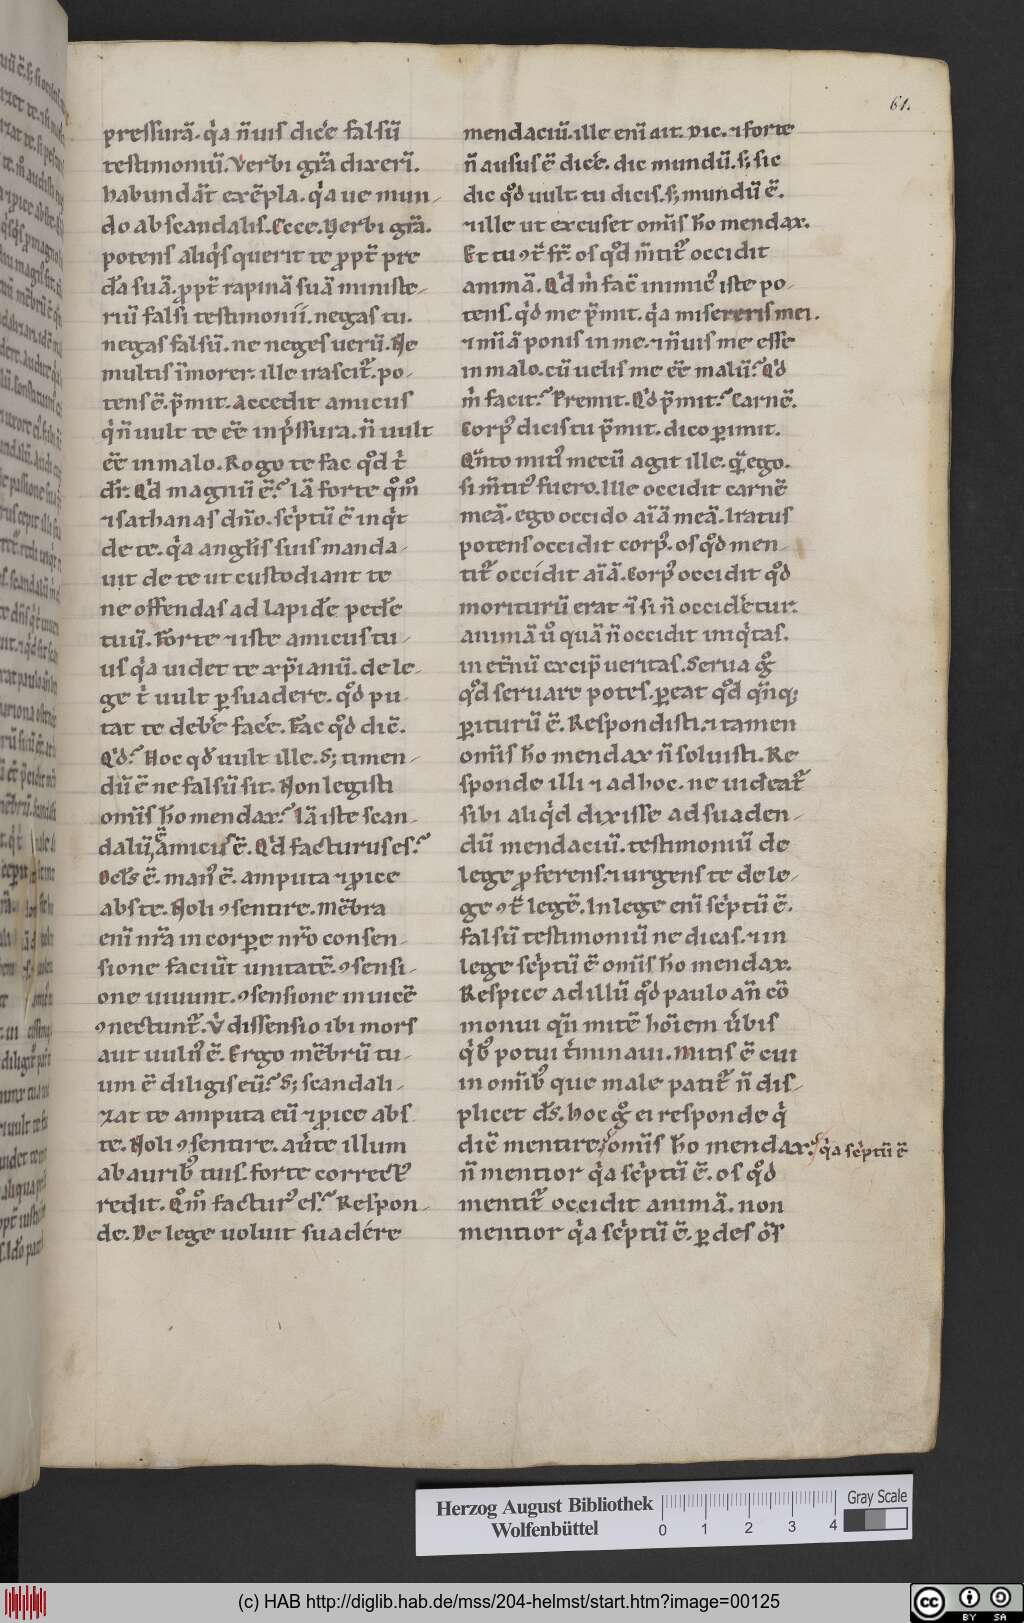 61.
pressurā. qͥa n̄uis dicē falsū
testimoniū. Verbi gr̄a dixerī.
habundāt exēpla. qͥa ue mun-
do ab scandalis. Ecce. Verbi gr̄a.
potens aliqͥs querit te ꝓpt̄ pre
d̄a suā. ꝓpt̄ rapinā suā ministe-
riū falsi testimonii. negas tu.
negas falsū. ne neges uerū. Ne
multis īmorer. ille irascit᷑. po-
tens ē. p̄mit. accedit amicus
qͥ n̄ uult te eē in p͛ssura. n̄ uult
eē in malo. Rogo te fac qͦd t̄
dr̄. Qͥd magnū ē? Iā forte qͦm̊
⁊ sathanas dn̄o. scͥptū ē inqͥt
de te. qͥa angl̄is suis manda-
uit de te ut custodiant te
ne offendas ad lapidē pedē
tuū. Forte ⁊ iste amicus tu-
us qͥa uidet te xp̄ianū. de le-
ge t̄ uult ꝑsuadere. qͦd pu-
tat te debe͛ face͛. Fac qͦd dic̄.
Qͥd? Hoc qd uult ille. S; timen-
dū ē ne falsū sit. Non legisti
om̄is ho mendax? Iā iste scan-
dalū, ē amicus ē. Qͥd facturus es?
Ocl̄s ē. manꝰ ē. amputa ⁊ ꝓice
abs te. Noli ꝯsentire. Mēbra
enī nr̄a in corpe nr̄o consen-
sione faciūt unitatē. ꝯsensi-
one uiuunt. ꝯsensione inuicē
ꝯnectunt᷑. V̄ dissensio ibi mors
aut uulnꝰ ē. Ergo mēbrū tu-
um ē diligis eū? S; scandali-
zat te amputa eū ⁊ ꝓice abs
te. Noli ꝯsentire. au͛te illum
ab auribꝰ tuis. forte correctꝰ
redit. Qͦm̊ facturꝰ es? Respon-
de. De lege uoluit suadére
mendaciū. ille enī ait. Dic. ⁊ forte
n̄ ausus ē dice͛. dic mundū. s; sic
dic qͦd uult. tu dicis. s; mundū ē.
⁊ ille ut excuset om̄is ho mendax.
Et tu ꝯt̄ fr̄. os qͦd m̄tit᷑ occidit
animā. Qͥd m̄ fac̄ inimicꝰ iste po-
tens. qͥd me p̄mit. qͥa misereris mei.
⁊ inīā ponis in me. ⁊ n̄ uis me esse
in malo. cū uelis me eē malū? Qͥd
m̄ facit? Premit. Qͥd p̄mit? Carnē.
Corpꝰ dicis tu p̄mit. dico ꝑimit.
Qn̄to mitiꝰ mecū agit ille. q̄ ego.
si m̄titꝰ fuero. Ille occidit carnē
meā. ego occido aīā meā. Iratus
potens occidit corpꝰ. os qͦd men-
tit᷑ occídit aīā. Corpꝰ occidit qͦd
moriturū erat ⁊ si n̄ occide͛tur.
animā ů quā n̄ occidit iniqͥtas.
in et̄nū excip̄ ueritas. Serua gͦ
qͦd seruare potes. ꝑeat qͦd qn̄q;
ꝑiturū ē. Respondisti. ⁊ tamen
om̄is ho mendax n̄ soluisti. Re
sponde illi ⁊ ad hoc. ne uideat᷑
sibi aliqͥd dixisse ad suaden-
dū mendaciū. testimoniū de
lege ꝓferens. ⁊ urgens te de le-
ge ꝯt̄ legē. In lege enī scͥptū ē.
falsū testimoniū ne dicas. ⁊ in
lege scͥptū ē om̄is ho mendax.
Respice ad illū qͦd paulo an̄ cō
monui qn̄ mitē hoīem u͛bis
qͥbꝰ potui t͛minaui. Mitis ē cui
in om̄ibꝰ que male patit᷑ n̄ dis-
plicet ds̄. hoc gͦ ei responde qͥ
dic̄ mentire. om̄is ho mendax. qͥa scͥptū ē
n̄ mentior qͥa scͥptū ē. os qͦd
mentit᷑ occidit animā. non
mentior qͥa scͥptū ē. ꝑdes om̄s
Herzog August Bibliothek
Wolfenbüttel
0 1 2 3 4
Gray Scale
(c) HAB http://diglib.hab.de/mss/204-helmst/start.htm?image=00125
cc BY SA